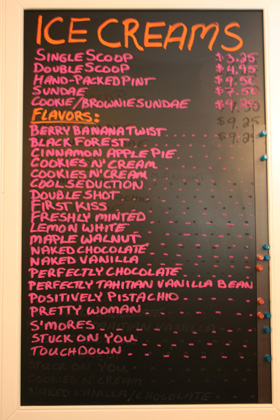 ICE CREAMS
SINGLE SCOOP $3.25
DOUBLE SCOOP $4.95
HAND-PACKED PINT $9.50
SUNDAE $7.50
COOKIE/BROWNIE SUNDAE
FLAVORS: $9.25
BERRY BANANA TWIST
BLACK FOREST $9.25
CINNAMON APPLE PIE
COOKIES N' CREAM
COOKIES N' CREAM
COOL SEDUCTION
DOUBLE SHOT
FIRST KISS
FRESHLY MINTED
LEMON WHITE
MAPLE WALNUT
NAKED CHOCOLATE
NAKED VANILLA
PERFECTLY CHOCOLATE
PERFECTLY TAHITIAN VANILLA BEAN
POSITIVELY PISTACHIO
PRETTY WOMAN
S'MORES
STUCK ON YOU
TOUCHDOWN
STUCK ON YOU
COOKIES N' CREAM
NAKED VANILLA/CHOCOLATE